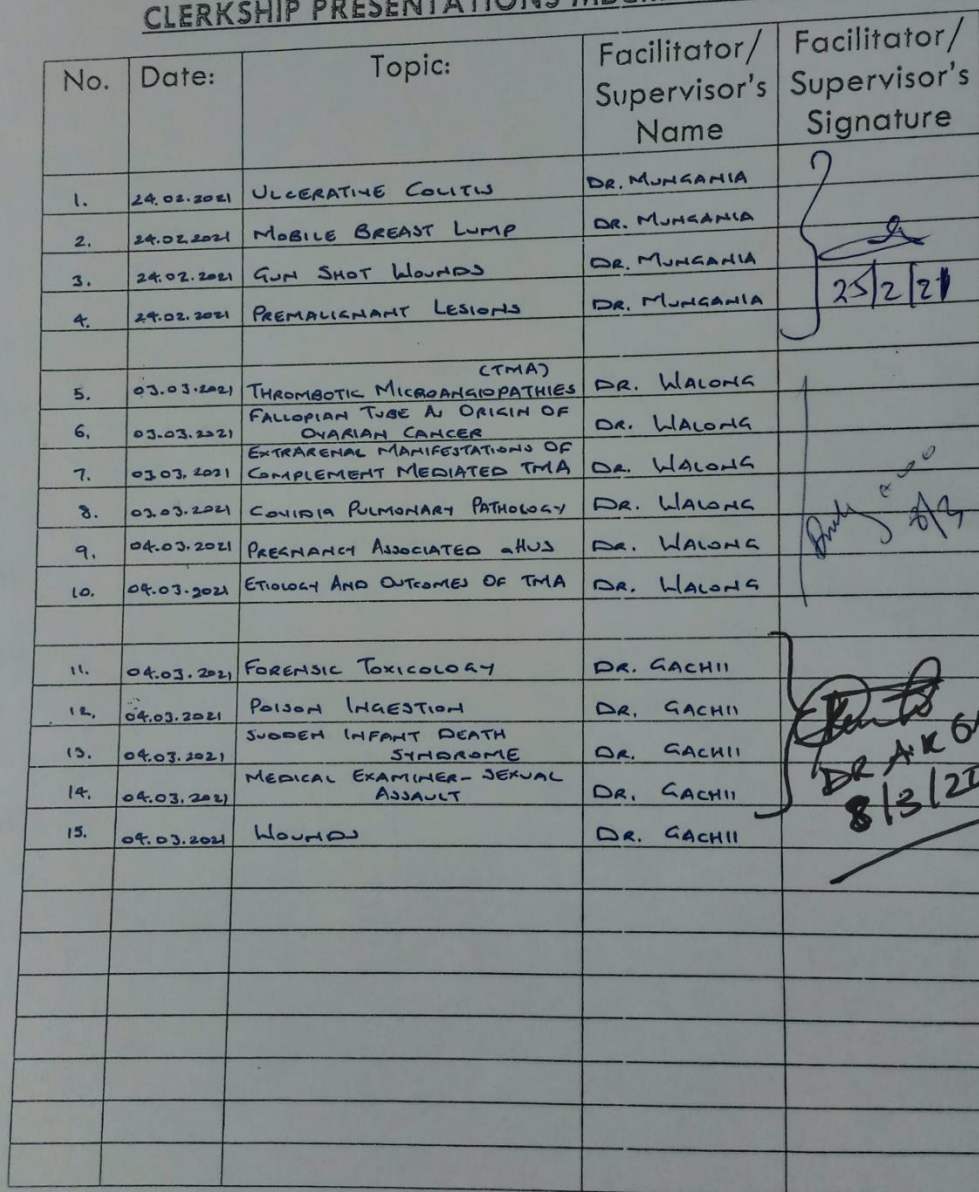 CLERKSHIP PRESENTATIONS
No. Date: Topic: Facilitator/ Supervisor's Name Facilitator/ Supervisor's Signature
1. 24.02.2021 ULCERATIVE COLITIS DR. MUNGANIA
2. 24.02.2021 MOBILE BREAST LUMP DR. MUNGANIA
3. 24.02.2021 GUN SHOT WOUNDS DR. MUNGANIA
4. 24.02.2021 PREMALIGNANT LESIONS DR. MUNGANIA
25/2/21
(TMA)
5. 03.03.2021 THROMBOTIC MICROANGIOPATHIES DR. WALONG
FALLOPIAN TUBE AS ORIGIN OF
6. 03.03.2021 OVARIAN CANCER DR. WALONG
EXTRARENAL MANIFESTATIONS OF
7. 03.03.2021 COMPLEMENT MEDIATED TMA DR. WALONG
8. 03.03.2021 COVID19 PULMONARY PATHOLOGY DR. WALONG
9. 04.03.2021 PREGNANCY ASSOCIATED aHUS DR. WALONG
10. 04.03.2021 ETIOLOGY AND OUTCOMES OF TMA DR. WALONG
11. 04.03.2021 FORENSIC TOXICOLOGY DR. GACHII
12. 04.03.2021 POISON INGESTION DR. GACHII
SUDDEN INFANT DEATH
13. 04.03.2021 SYNDROME DR. GACHII
MEDICAL EXAMINER- SEXUAL
14. 04.03.2021 ASSAULT DR. GACHII
15. 04.03.2021 WOUNDS DR. GACHII
DR A.K
8/3/21